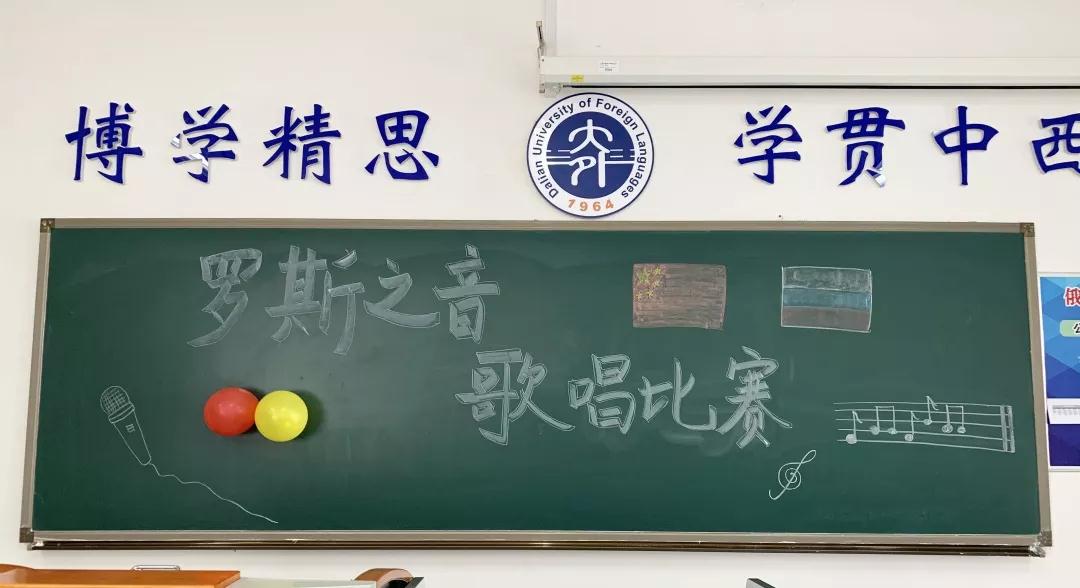 博学精思
Dalian University of Foreign Languages
大外
1964
学贯中西
罗斯之音
歌唱比赛
俄